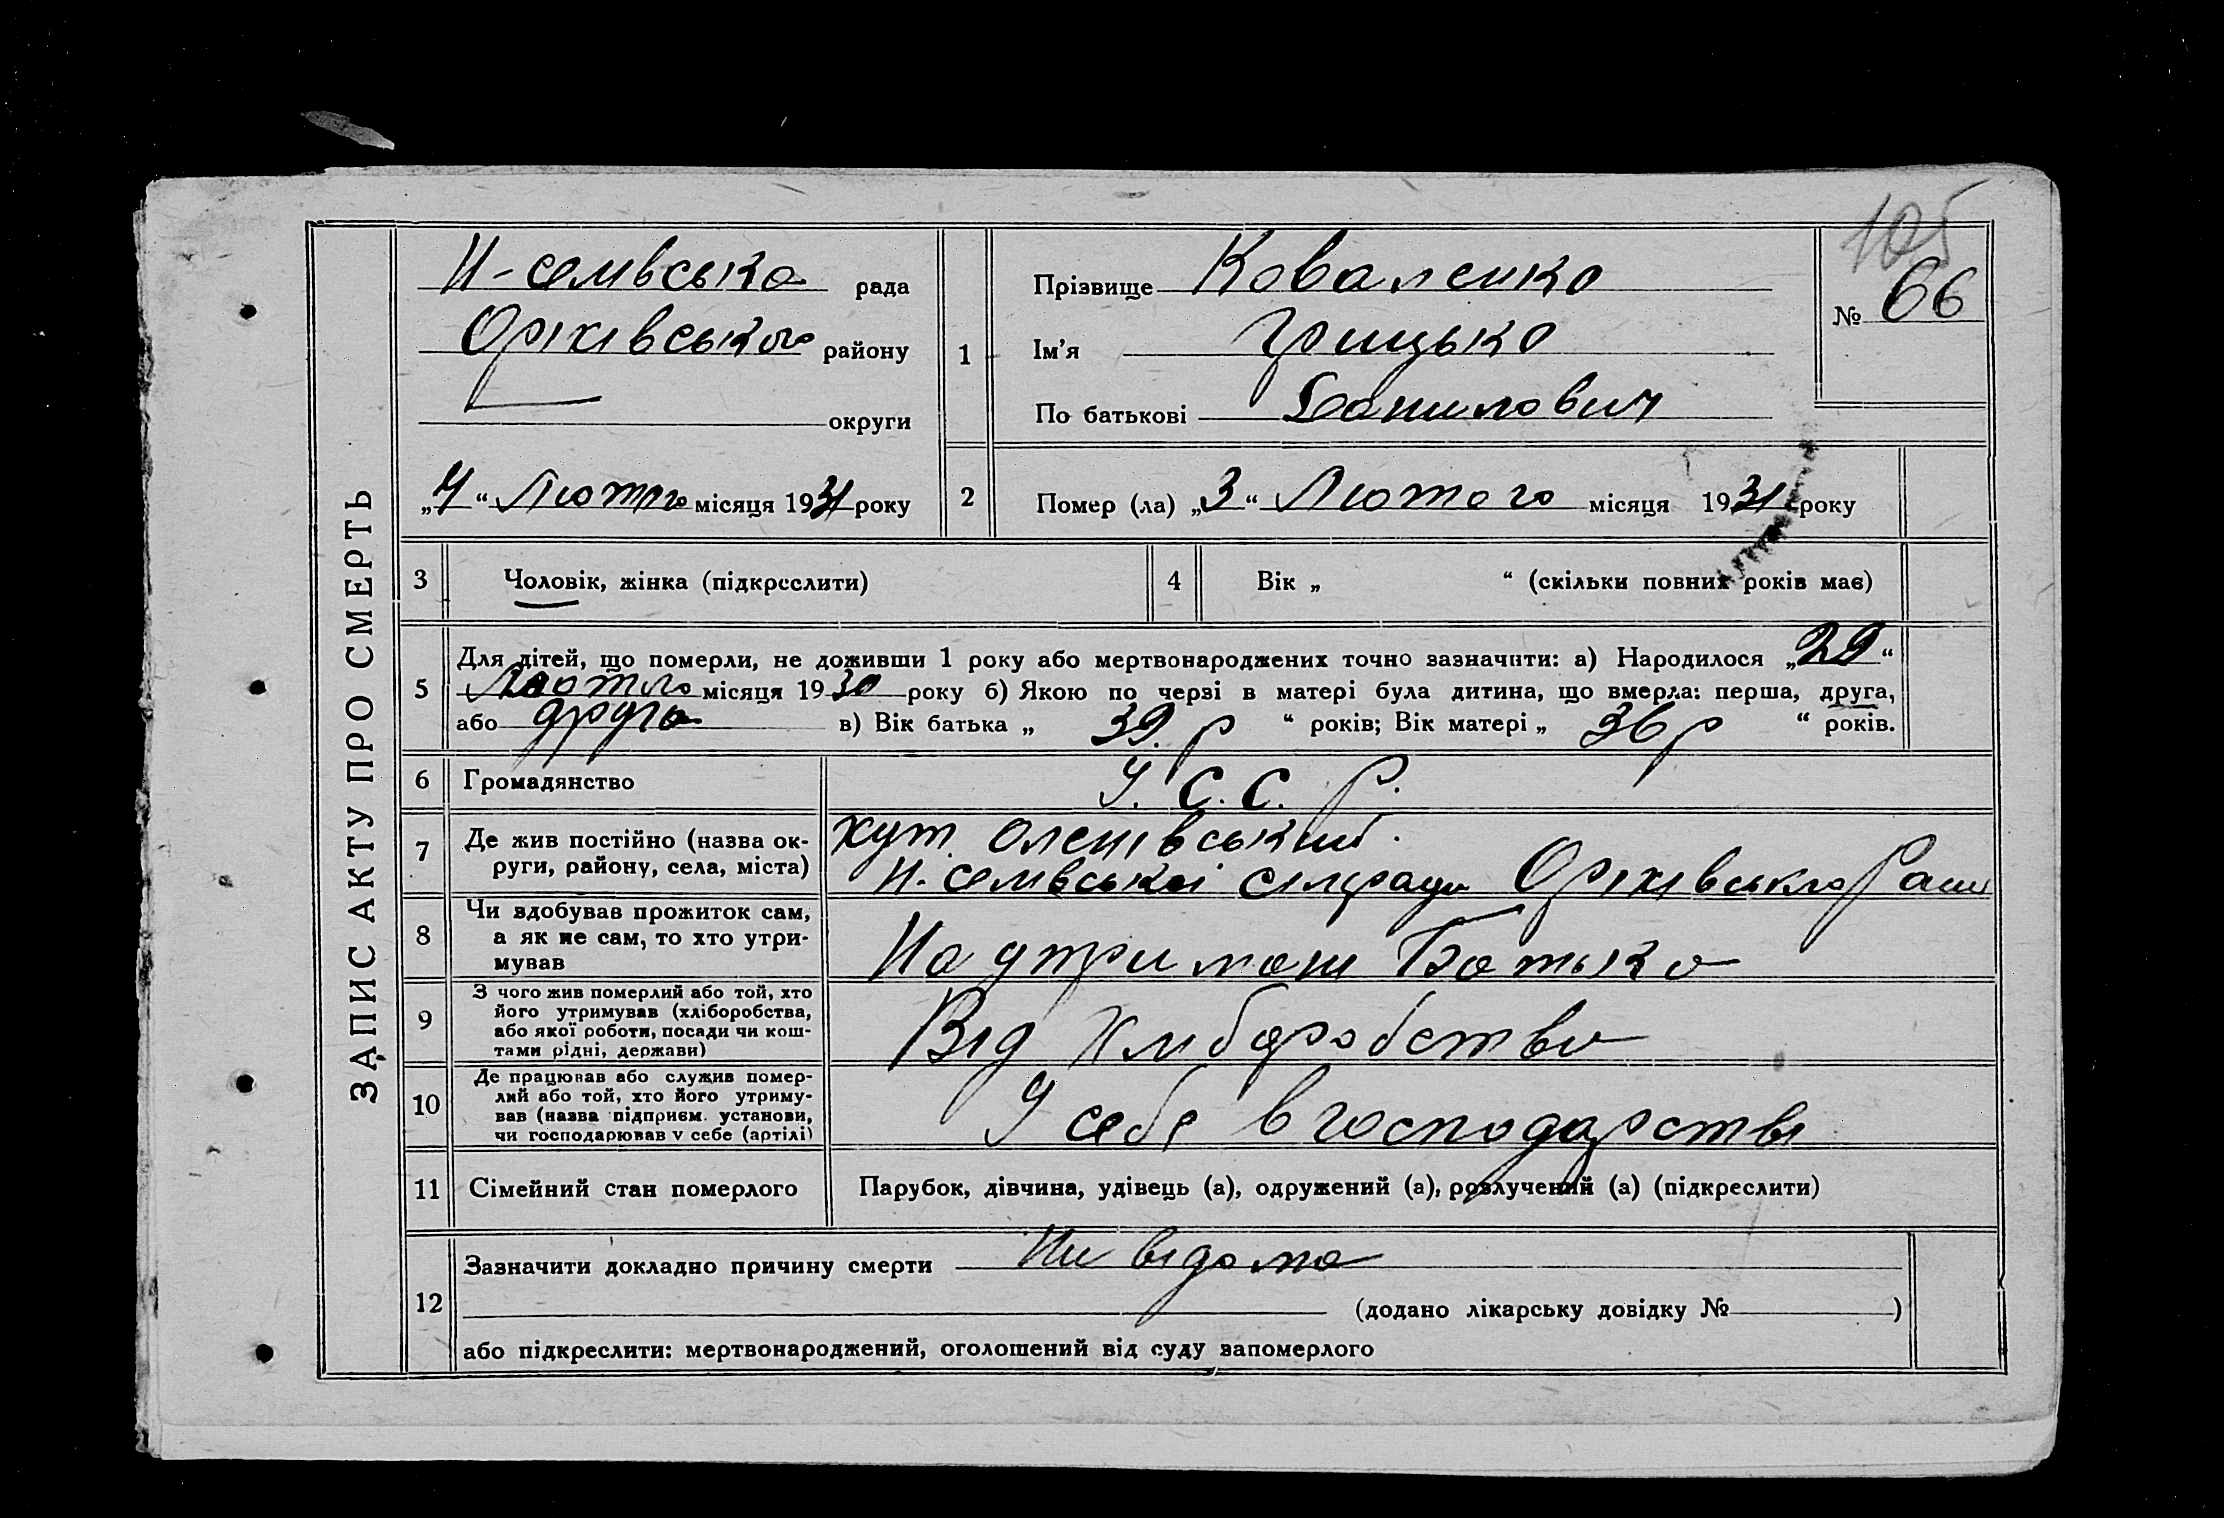 ЗАПИС АКТУ ПРО СМЕРТЬ
105
№ 66
Н-семівська рада
Оріхівського району
округи
„4“ Лютого місяця 1931 року
1
Прізвище Коваленко
Ім’я Грицько
По батькові Данилович
2 Помер (ла) „3“ Лютого місяця 1931 року
3 Чоловік, жінка (підкреслити)
4 Вік „ “ (скільки повних років має)
5 Для дітей, що померли, не доживши 1 року або мертвонароджених точно зазначити: а) Народилося „29“
Лютого місяця 1930 року б) Якою по черзі в матері була дитина, що вмерла: перша, друга,
або друга в) Вік батька „ 39. р “ років; Вік матері „ 36 р “ років.
6 Громадянство У. С. С. Р.
7 Де жив постійно (назва округи, району, села, міста)
хут. Оленівський.
Н. семівської сільради Оріхівського
8 Чи здобував прожиток сам,
а як не сам, то хто утри-
мував
На утримані Батька
9 З чого жив померлий або той, хто
його утримував (хліборобства,
або якої роботи, посади чи кош-
тами рідні, держави)
Від хліборобства
10 Де працював або служив помер-
лий або той, хто його утриму-
вав (назва підприєм. установи,
чи господарював у себе (артілі)
У себе в господарстві
11 Сімейний стан померлого Парубок, дівчина, удівець (а), одружений (а), розлучений (а) (підкреслити)
12 Зазначити докладно причину смерти Не відома
(додано лікарську довідку № )
або підкреслити: мертвонароджений, оголошений від суду запомерлого